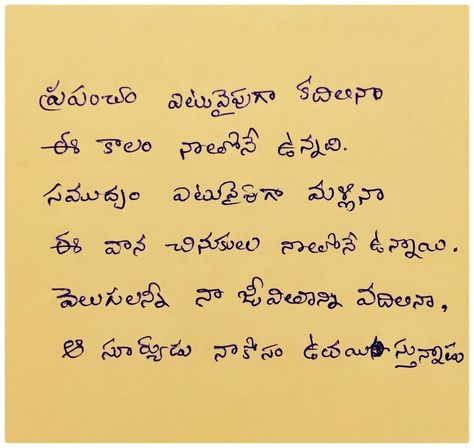 ప్రపంచం ఎటువైపుగా కదిలినా
ఈ కాలం నాతోనే ఉన్నది.
సముద్రం ఎటువైపుగా మళ్లినా
ఈ వాన చినుకులు నాతోనే ఉన్నాయి.
వెలుగులన్నీ నా జీవితాన్ని వదిలినా,
ఆ సూర్యుడు నాకోసం ఉదయిస్తున్నాడు